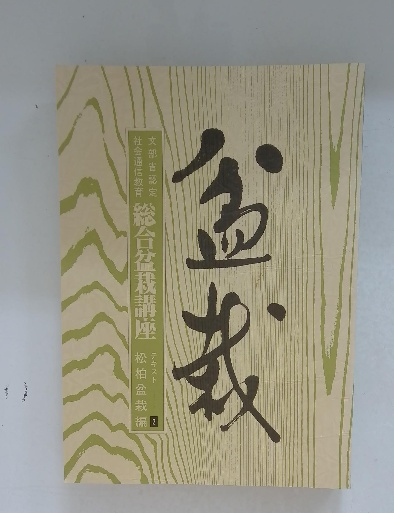 盆栽
文部省認定
社会通信教育
総合盆栽講座
テキスト
松柏盆栽編